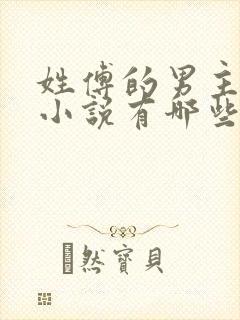 姓傅的男主
小说有哪些
然寶貝